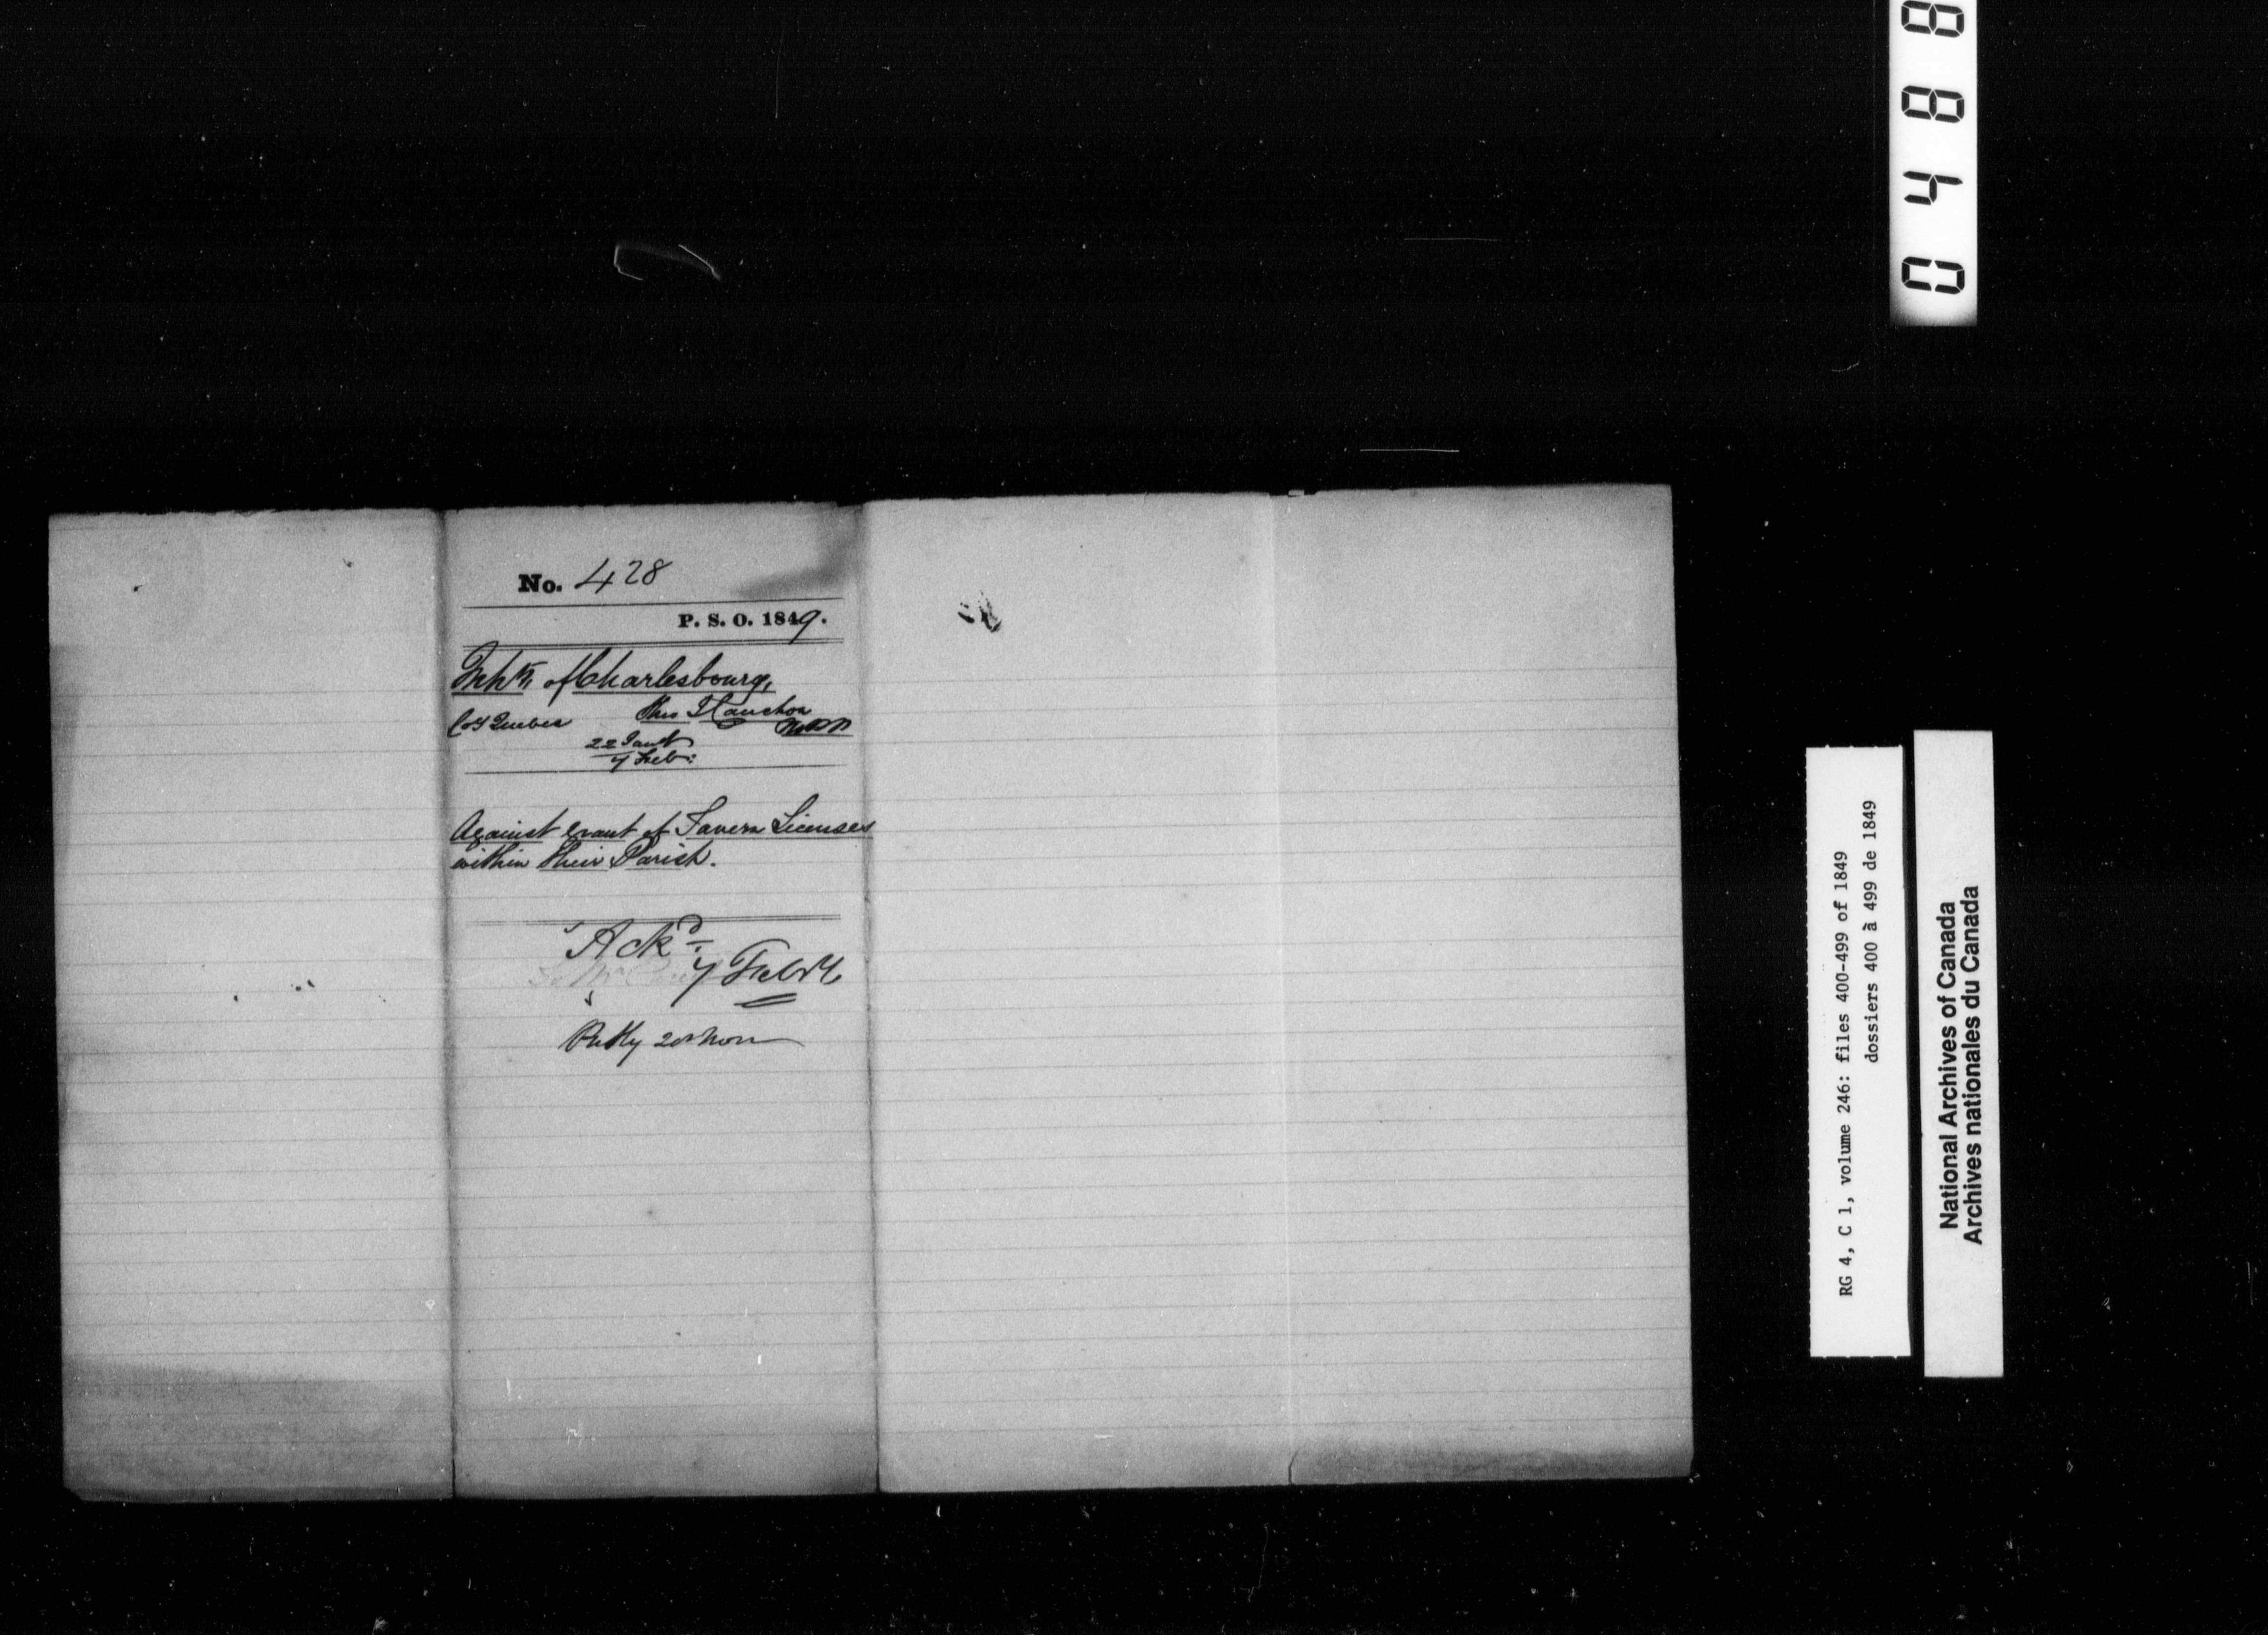 No. 428
P. S. O. 1849.
Inhts of Charlesbourg,
Coy Quebec Thro J Cauchon
MPP
22 Jany
7 Feb:
Against Grant of Tavern Licenses
within their Parish.
Ackd
7 Feb
20 Nov
0488
RG 4, C 1, volume 246: files 400-499 of 1849
dossiers 400 à 499 de 1849
National Archives of Canada
Archives nationales du Canada